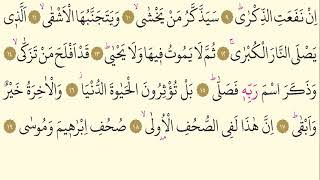 اِنْ نَفَعَتِ الذِّكْرٰىۜ ﴿٩﴾ سَيَذَّكَّرُ مَنْ يَخْشٰىۙ ﴿١٠﴾ وَيَتَجَنَّبُهَا الْاَشْقٰىۙ ﴿١١﴾ اَلَّذ۪ي
يَصْلَى النَّارَ الْكُبْرٰىۚ ﴿١٢﴾ ثُمَّ لَا يَمُوتُ ف۪يهَا وَلَا يَحْيٰىۜ ﴿١٣﴾ قَدْ اَفْلَحَ مَنْ تَزَكّٰىۙ ﴿١٤﴾
وَذَكَرَ اسْمَ رَبِّه۪ فَصَلّٰىۜ ﴿١٥﴾ بَلْ تُؤْثِرُونَ الْحَيٰوةَ الدُّنْيَاۘ ﴿١٦﴾ وَالْاٰخِرَةُ خَيْرٌ
وَاَبْقٰىۜ ﴿١٧﴾ اِنَّ هٰذَا لَفِي الصُّحُفِ الْاُو۫لٰىۙ ﴿١٨﴾ صُحُفِ اِبْرٰه۪يمَ وَمُوسٰى ﴿١٩﴾